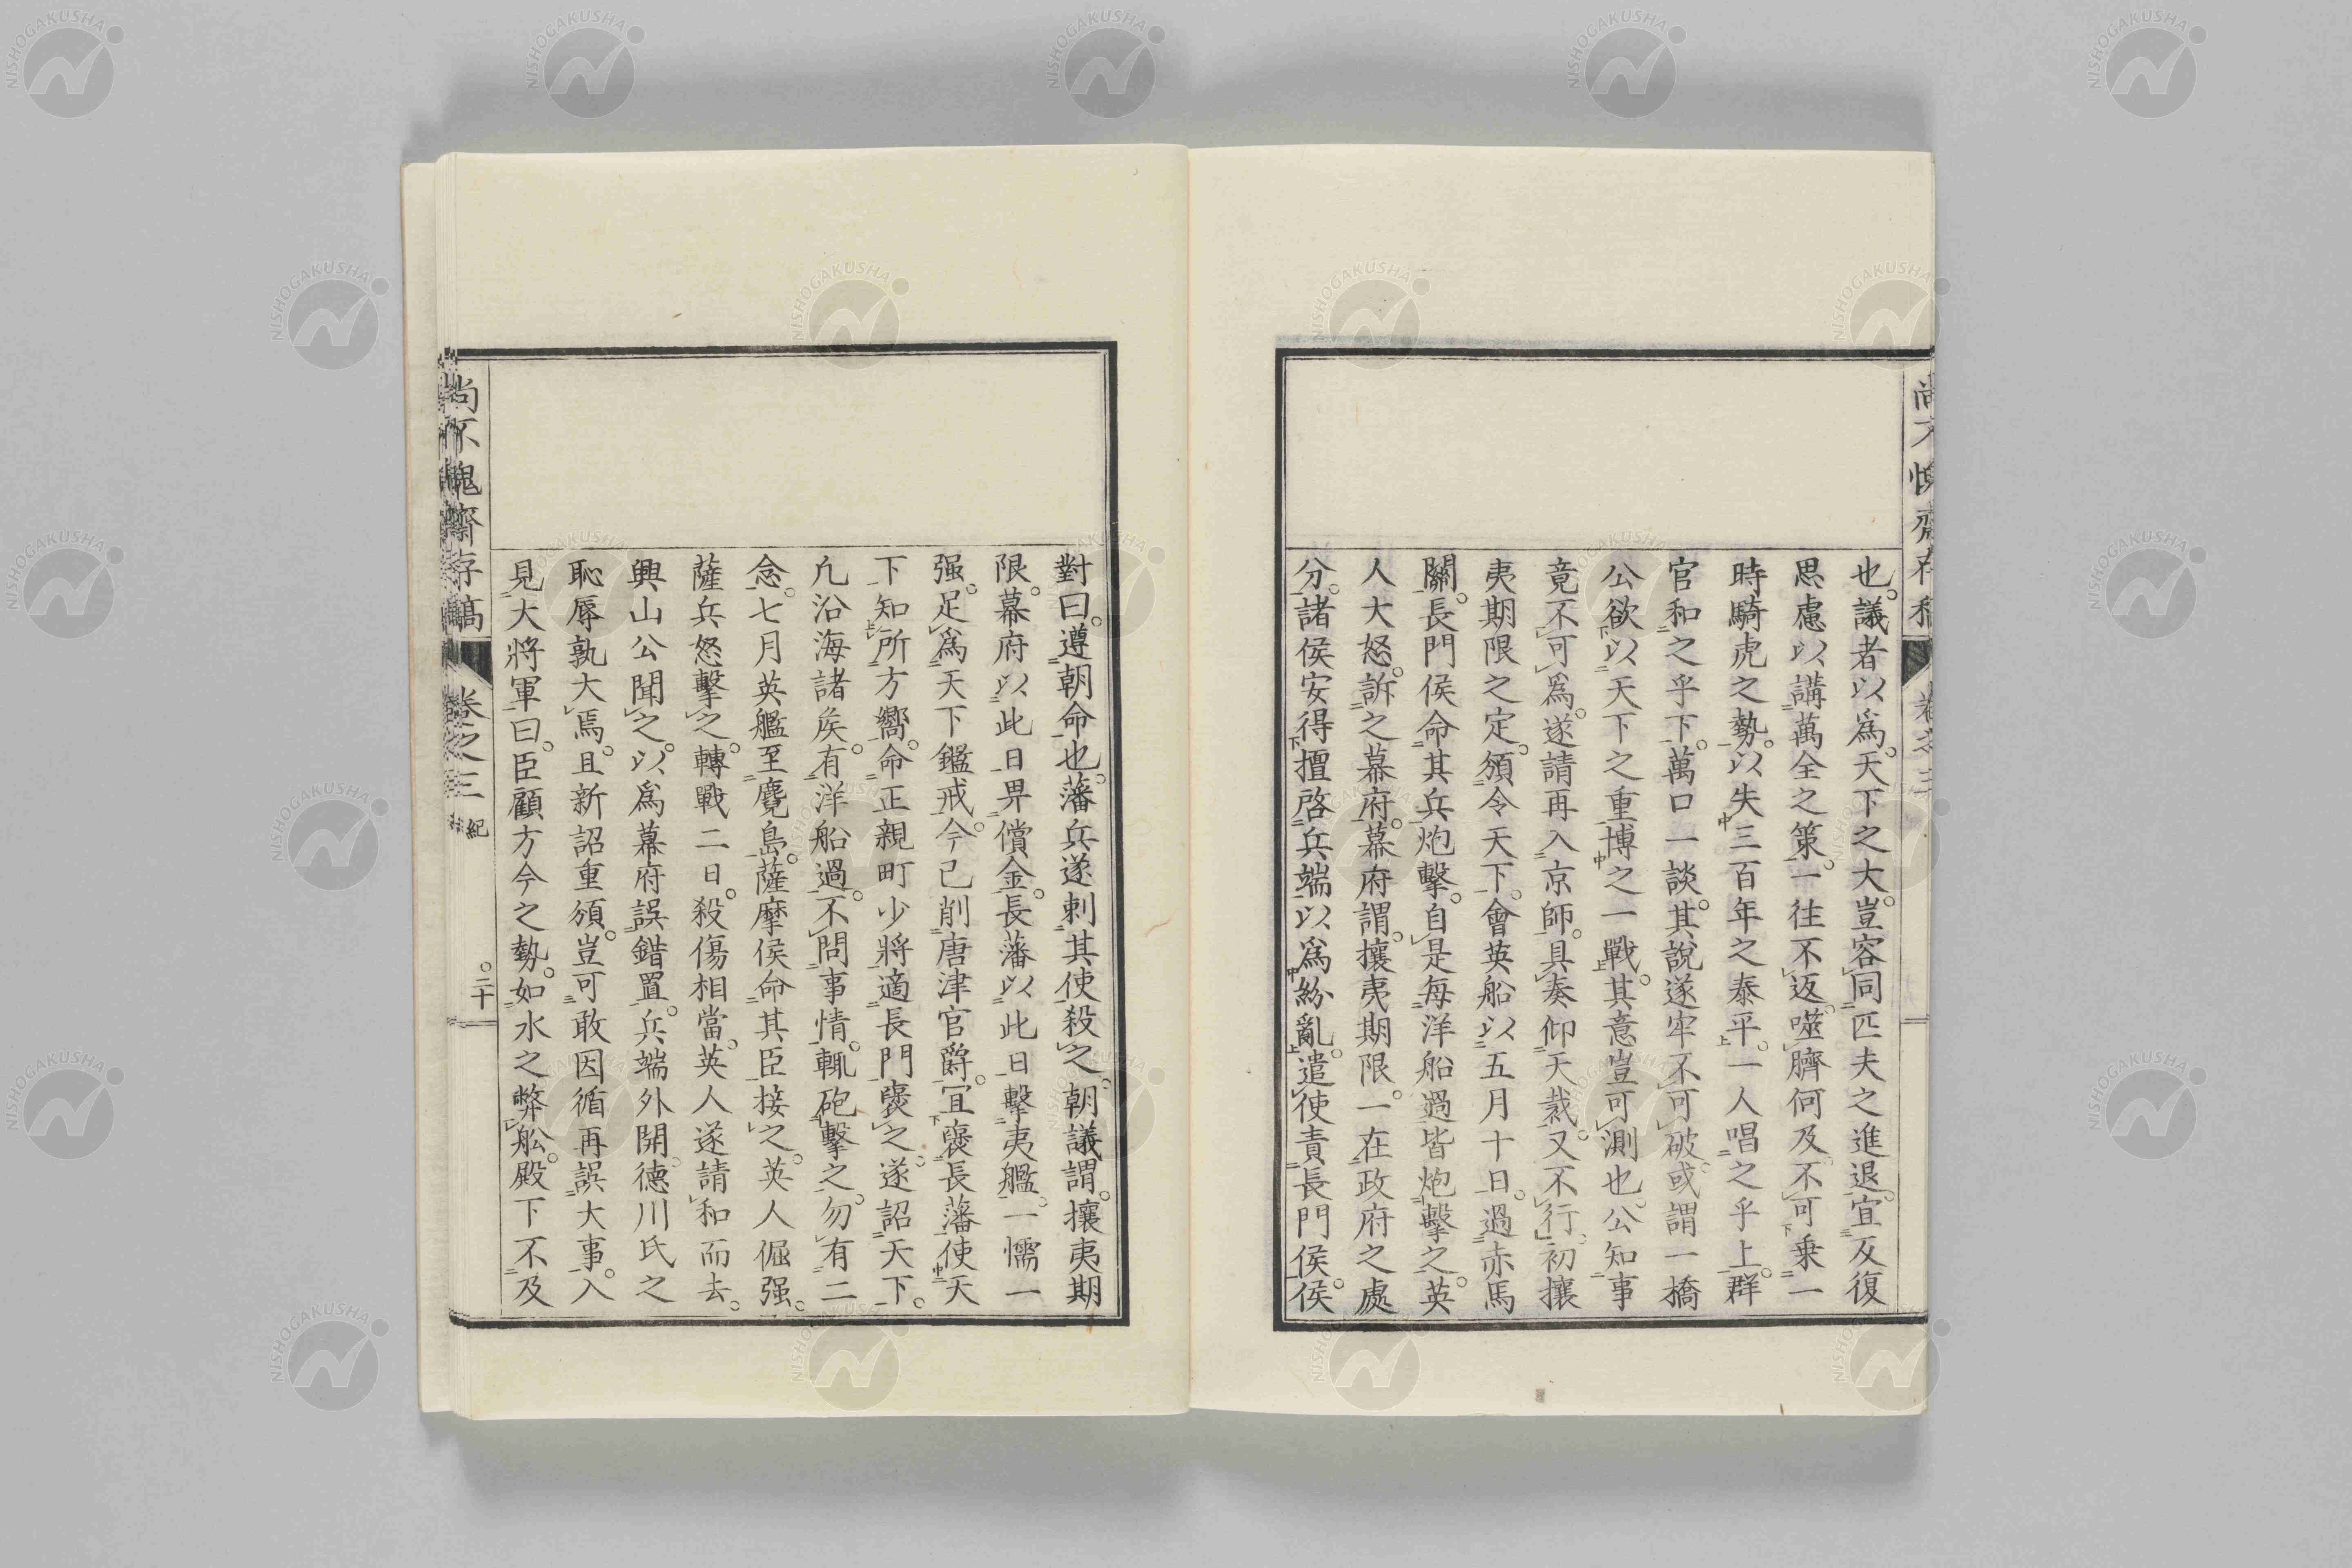 也。議者以爲。天下之大。豈容同匹夫之進退。宜反復
思慮以講萬全之策。一往不返。噬臍何及。不可乗一
時騎虎之勢。以失三百年之泰平。一人唱之乎上。群
官和之乎下。萬口一談。其說遂牢不可破。或謂一橋
公欲以天下之重博之一戰。其意豈可測也。公知事
竟不可爲。遂請再入京師。具奏仰天裁。又不行。初攘
夷期限之定。頒令天下。會英船以五月十日。過赤馬
關。長門侯命其兵炮擊。自是每洋船過皆炮擊之。英
人大怒。訴之幕府。幕府謂。攘夷期限。一在政府之處
分。諸侯安得擅啓兵端以爲紛亂。遣使責長門侯。侯
對曰。遵朝命也。藩兵遂刺其使殺之。朝議謂。攘夷期
限。幕府以此日畀償金。長藩以此日擊夷艦。一懦一
强。足爲天下鑑戒。今已削唐津官爵。宜襃長藩使天
下知所方嚮。命正親町少將適長門襃之。遂詔天下。
凢沿海諸矦。有洋船過。不問事情。輙砲擊之。勿有二
念。七月英艦至麑島。薩摩侯命其臣接之。英人倔强。
薩兵怒擊之。轉戰二日。殺傷相當。英人遂請和而去。
興山公聞之。以爲幕府誤錯置。兵端外開。德川氏之
恥辱孰大焉。且新詔重頒。豈可敢因循再誤大事。入
見大將軍曰。臣顧方今之勢。如水之弊舩。殿下不及
尚不愧齋存稿 卷之三 紀 ○二十